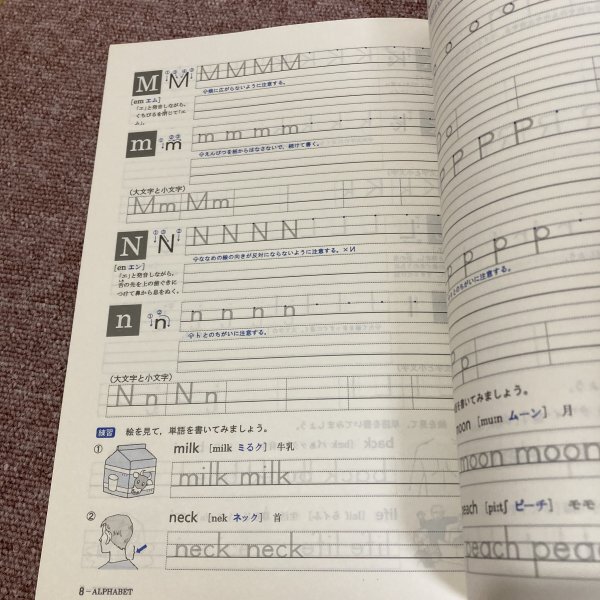 M M M M M M
[em エム]
「エ」と発音しながら,
くちびるを閉じて「エ
ム」。
☆横に広がらないように注意する。
m m m m m m
☆えんぴつを紙からはなさないで, 続けて書く。
(大文字と小文字)
Mm Mm
N N N N N N
[en エン]
「エ」と発音しながら,
舌の先を上の歯ぐきに
つけて鼻から息をぬく。
☆ななめの線の向きが反対にならないように注意する。×И
n n n n n n
☆hとのちがいに注意する。
(大文字と小文字)
Nn Nn
練習 絵を見て, 単語を書いてみましょう。
① milk [milk ミるク] 牛乳
milk milk
② neck [nek ネック] 首
neck neck
8−ALPHABET
o o o
P P P P
p p p p
のちがいに注意する。
を見て, 単語を書いてみましょう。
moon [mu:n ムーン] 月
moon moon
peach [pi:tʃ ピーチ] モモ
peach pea